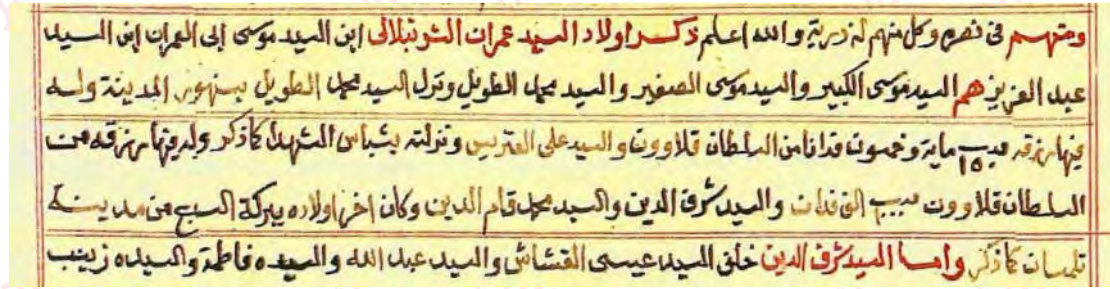 ومنهم في نصره وكل منهم له ذرية والله اعلم ذكر اولاد السيد عمران الشرنبلالى ابن السيد موسى ابى العمران ابن السيد
عبد العزيز هم السيد موسى الكبير والسيد موسى الصغير والسيد محمد الطويل ونزل السيد محمد الطويل بسنهور المدينة وله
فيها رزقه ماية وخمسون فدانا من السلطان قلاوون والسيد على العتريس ونزلته بشباس الشهدا كما ذكر وله فيها رزقه من
السلطان قلاوون الف فدان والسيد شرف الدين والسيد محمد قام الدين وكان اخر اولاده ببركة السبع من مدينة
تلمسان كما ذكر واما السيد شرف الدين خلف السيد عيسى القشاش والسيد عبد الله والسيده فاطمة والسيده زينب